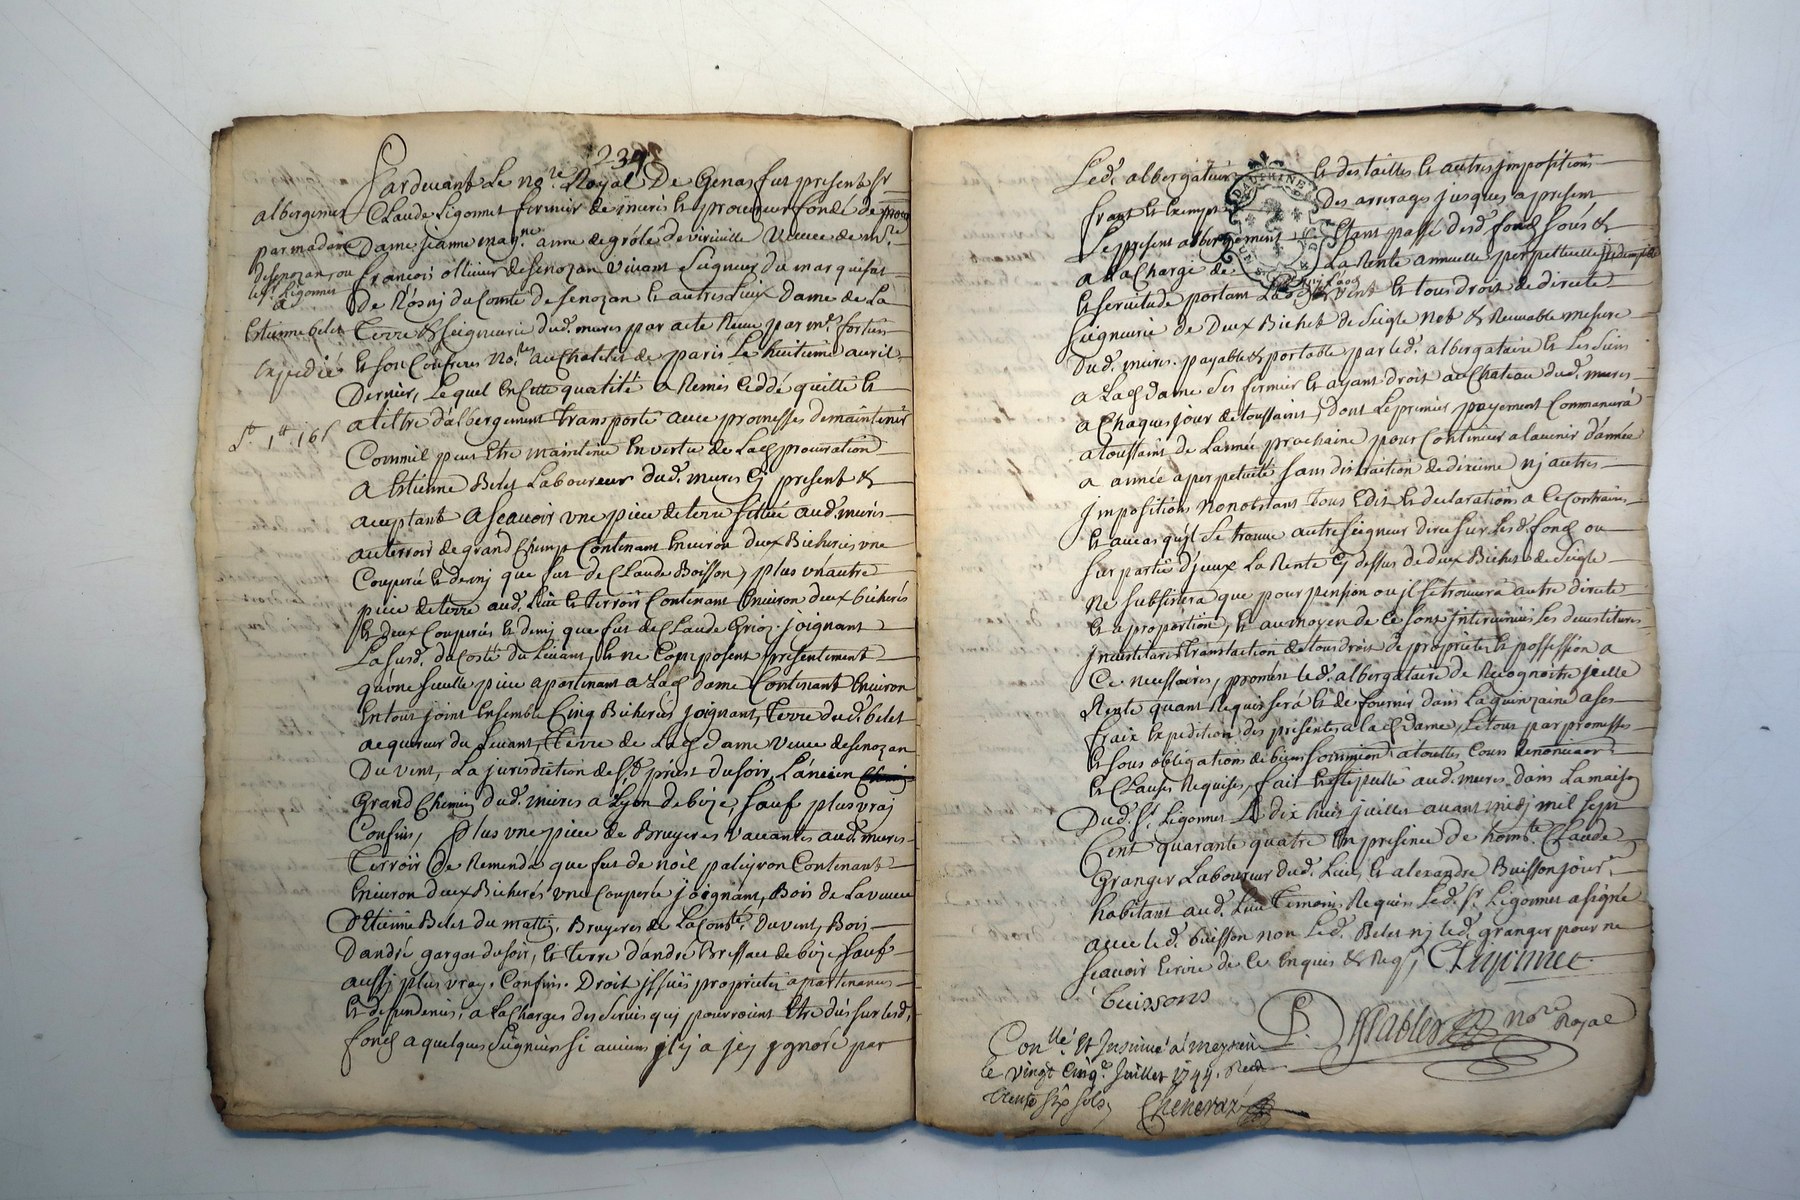 239
Pardevant Le no.re Royal De Genas fut present sr
Claude Ligonnet fermier de mures et procureur fondé de
Dame jeanne mag.ne anne de grôlé de viriville Veuve de m.re
françois ollivier de senozan vivant Seigneur du marquisat
De Rosnj du Comté de senozan et autres Lieux Dame de La
Terre & seigneurie dud. mures par acte Receu par m.e fortier
et son Confrere No.res au Chatelet de paris Le huitieme avril
Dernier, Lequel en Cette qualitté a Remis Ceddé quitté et
a tiltre d'albergement transporté avec promesses de maintenir
Comm'il peut Etre maintenu en vertu de Lad procuration
A Estienne Belet Laboureur dud. mures Cj present &
aceptant a sçavoir une piece de terre sittuée aud. mures
au terroir de grand Champ Contenant Environ deux Bicherées une
Couperée et demj que fut de Claude Boisson, plus un autre
piece de terre aud. Lieu et terroir Contenant Environ deux bicherés
et deux Couperés et demj que fut de Claude Grioz joignant
La susd. du Costé du Levant, et ne Composent presentement
qu'une seulle piece apartenant a Lad dame Contenant Environ
En tout joint Ensemble Cinq Bicherées joignant, Terre dud. belet
acquereur du Levant, Terre de Lad Dame Veuve de senozan
Du vent, La jurisdiction de S.t priest du soir, L'ancien
Grand Chemin dud. mures a Lyon de bize, sauf plus vraj
Confins, Plus une piece de Bruyeres vacantes aud. mures
Terroir De Remends que fut de noël paleyron Contenant
Environ deux Bicherés une Couperée joignant, Bois de La veuve
D'Etienne Belet du mattin, Bruyeres de La Com.té Du vent, Bois
D'andré gargat du soir, et Terre d'andré Bressat de bize sauf
aussj plus vray Confins. Droit issuës proprietés apartenances
et dependences, a La Charges des servis quj pourroient Etre dus sur lesd.
fonds a quelques Seigneurs si aucuns y en a jey ignoré par
albergement
par madame
de senozan, ou
le s.r Ligonnet
a
Estienne belet
Expedié
Led. albergateur et des tailles et autres impositions
franc et Exempt Des arrerages jusques a present
Le present albergement Etant passé desd. fonds sous &
a La Charge de La Rente annuelle perpettuelle
et servitude portant et tous droit de directe
seigneurie de Deux Bichet de seigle Net & Recevable mesure
dud. mures. payable & portable par led. albergataire et Les siens
a Lad dame Ses fermier et ayant droit au Chateau dud. mures
a Chaque jour de toussaint, dont Le premier payement Commancera
a toussaint de L'année prochaine pour Continuer a l'avenir d'année
a année a perpetuité sans distraction de dixieme nj autres
impositions Nonobstant tous Edit et declarations a Ce Contraires
et au cas qu'il se trouve autre seigneur direct sur lesd fonds ou
sur partie d'jceux La Rente Cj dessus de deux Bichet de seigle
Ne subsistera que pour pension ou jl se trouvera autre directe
et a proportion, et au moyen de Ce sont jntervenues les devestitures
jnvestitures translaction de tous droit de proprieté et possession a
Ce necessaires, promet led. albergataire de Recognoitre jcelle
Rente quant Requis sera et de fournir dans La quinzaine a ses
fraix Expedition des presentes a lad dame, Le tout par promesses
et sous obligations de biens soumissions a touttes Cours Renonciaons
et Clauses Requises, fait et stipullé aud. mures dans La maison
Dud. s.r Ligonnet Le dix huit juillet avant midj mil sept
Cent quarante quatre En presence de hon.te Claude
Granger Laboureur dud. Lieu, et alexandre Buisson jour.r
habitant aud. Lieu Temoins Requis Led. s.r Ligonnet a signé
avec led. buisson non Led. Belet nj led. granger pour ne
sçavoir Ecrire de Ce Enquis & Reqs
buissons
no.re Royal
Con.llé Et Insinué a meyzieu
le vingt Cinq.e Juillet 1744. Reçu
trente six sols
DAUPHINÉ